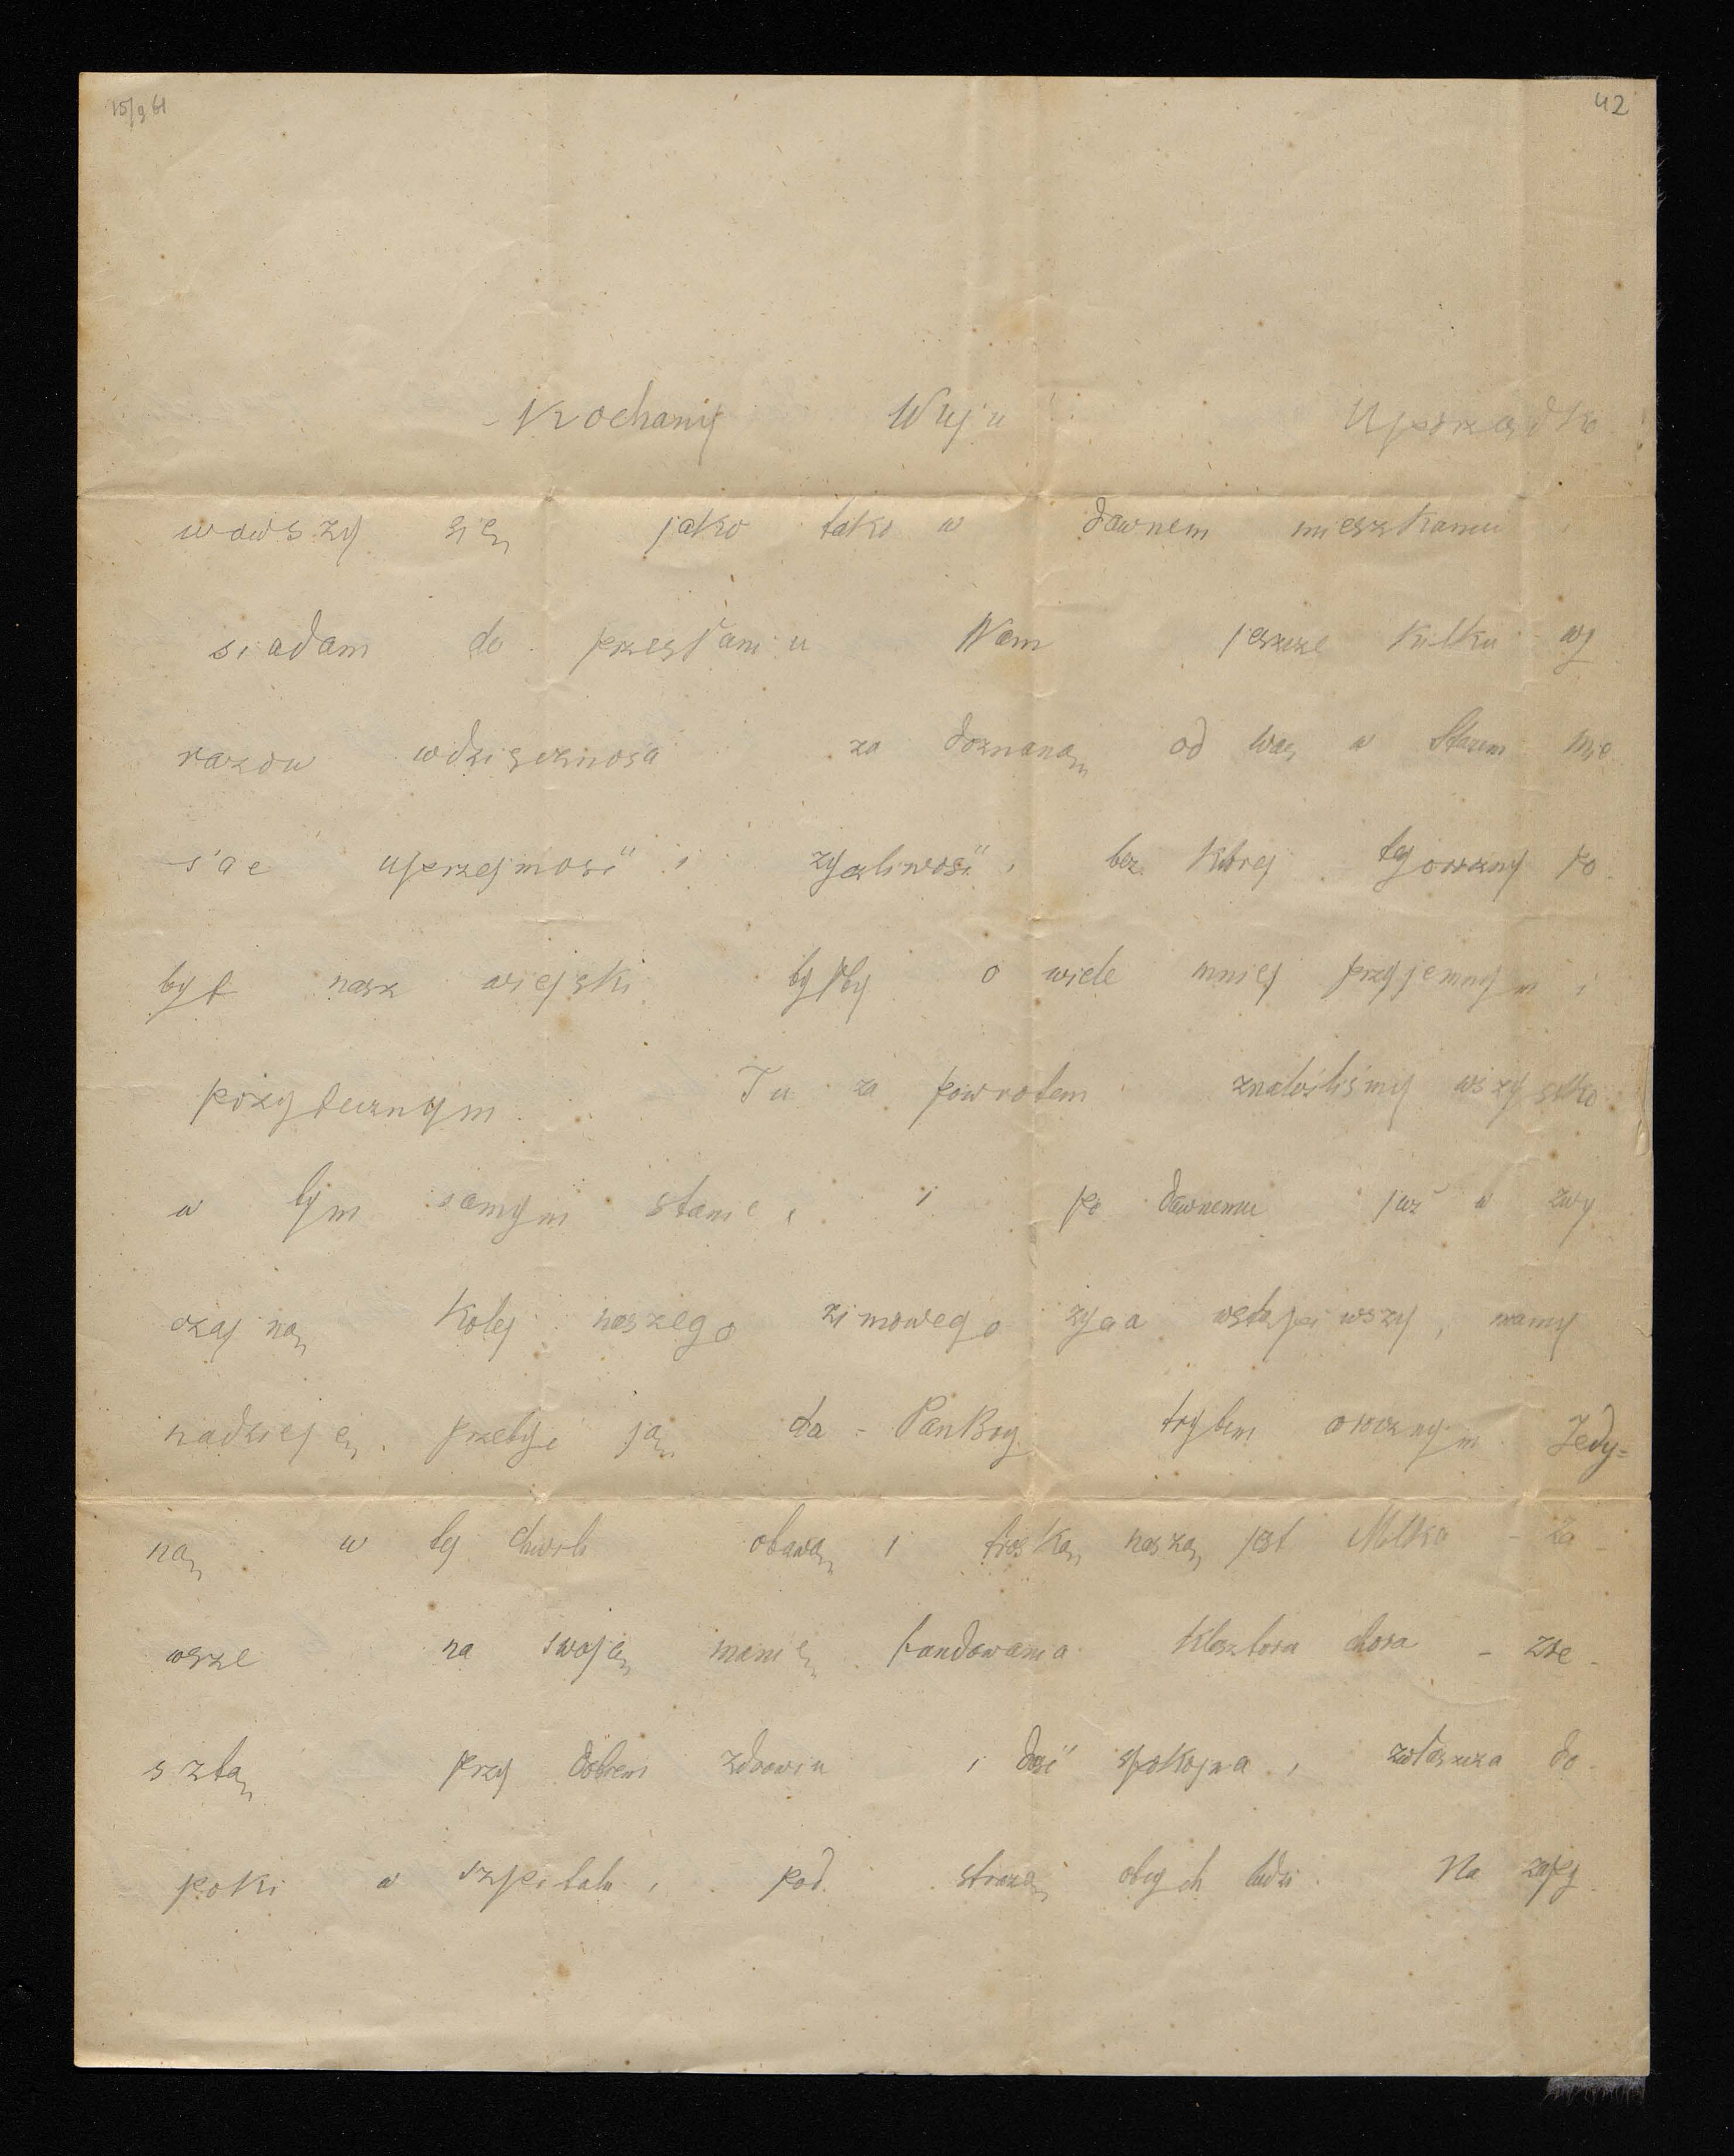 15/9 61
42
Kochany Wuju Uporządko
wawszy się jako tako w dawnem mieszkaniu
siadam do przesłaniu Wam jeszcze kilku wy
razów wdzięczności za doznaną od Was w Starem mie
ście uprzejmość i życzliwość, bez której tegoroczny po
byt nasz wiejski byłby o wiele mniej przyjemnym i
pożytecznym. Tu za powrotem znaleźliśmy wszystko
w tym samym stanie, i po dawnemu już w zwy
czajną kolej naszego zimowego życia wstąpiwszy, mamy
nadzieję, przebyć ją da-PanBóg trybem orocznym. Jedy=
ną w tej chwili obawą i troską naszą jest Milka - za-
wsze na swoją manię fundowania klasztoru chora - zre-
sztą przy dobrem zdrowiu i dość spokojna, zwłaszcza do-
póki w szpitalu, pod strażą obcych ludzi. Na zapy